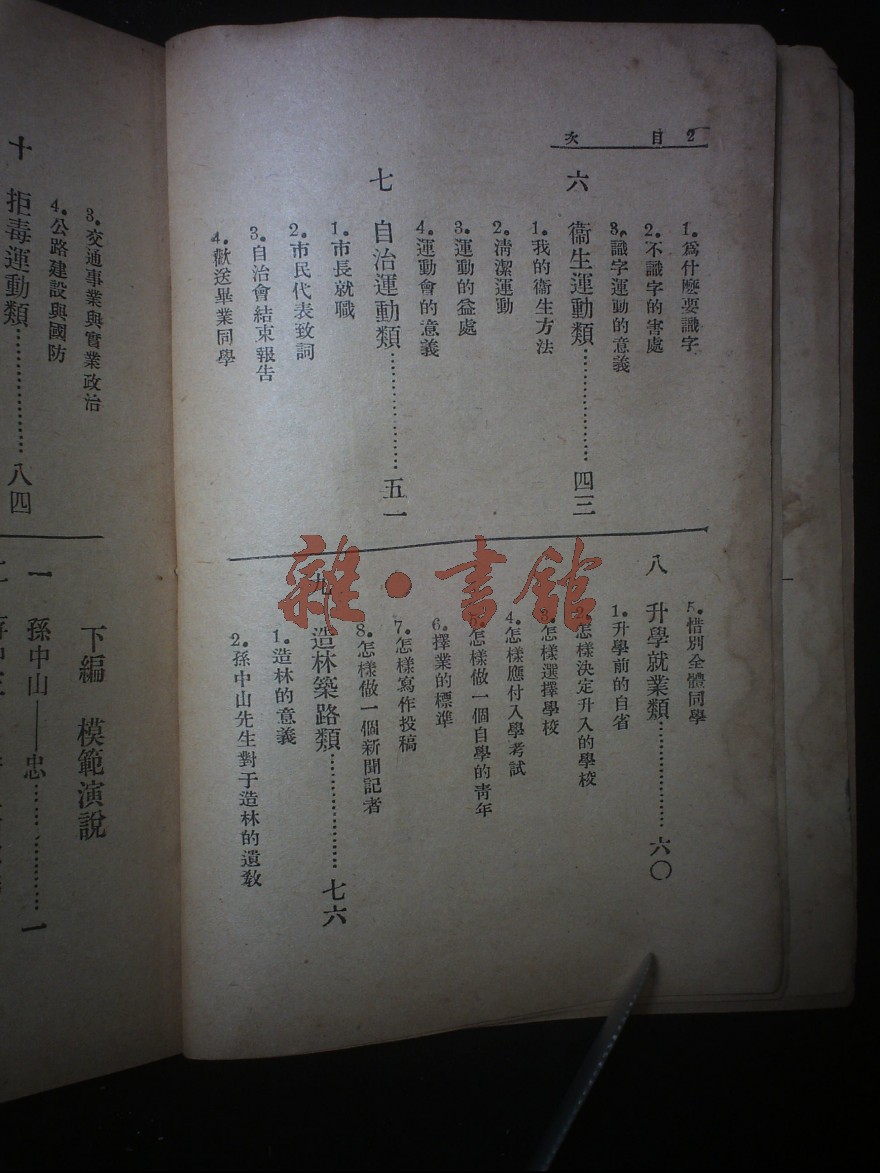 2 目次
1. 爲什麼要識字
2. 不識字的害處
3. 識字運動的意義
六 衞生運動類………………四三
1. 我的衞生方法
2. 淸潔運動
3. 運動的益處
4. 運動會的意義
七 自治運動類………………五一
1. 市長就職
2. 市民代表致詞
3. 自治會結束報告
4. 歡送畢業同學
5. 惜別全體同學
八 升學就業類………………六〇
1. 升學前的自省
2. 怎樣決定升入的學校
3. 怎樣選擇學校
4. 怎樣應付入學考試
5. 怎樣做一個自學的靑年
6. 擇業的標準
7. 怎樣寫作投稿
8. 怎樣做一個新聞記者
九 造林築路類………………七六
1. 造林的意義
2. 孫中山先生對于造林的遺敎
3. 交通事業與實業政治
4. 公路建設與國防
十 拒毒運動類………………八四
下編 模範演說
一 孫中山——忠………………一
雜·書館